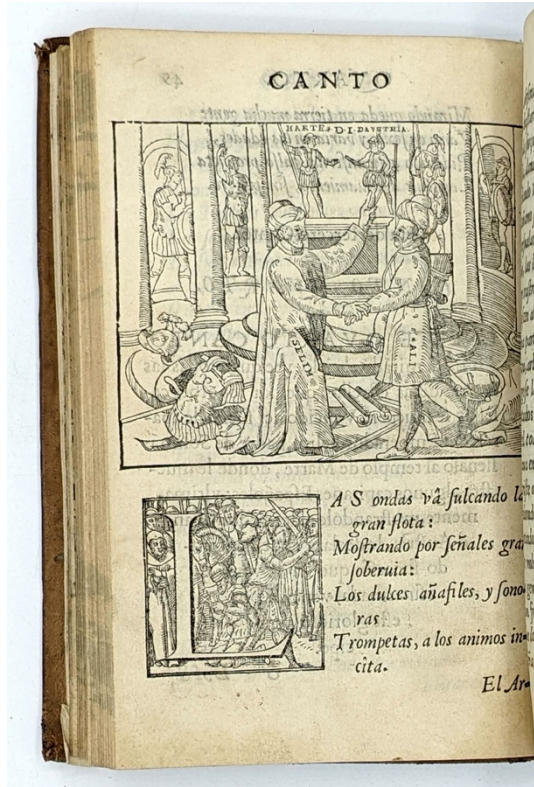 CANTO
MARTE. D. I. DAVSTRIA.
SELIM
ALI
LAS ondas vâ ſulcando la
gran flota:
Moſtrando por ſeñales gra
ſoberuia:
Los dulces añafiles, y ſono-
ras
Trompetas, a los animos in-
cita.
El Ar-